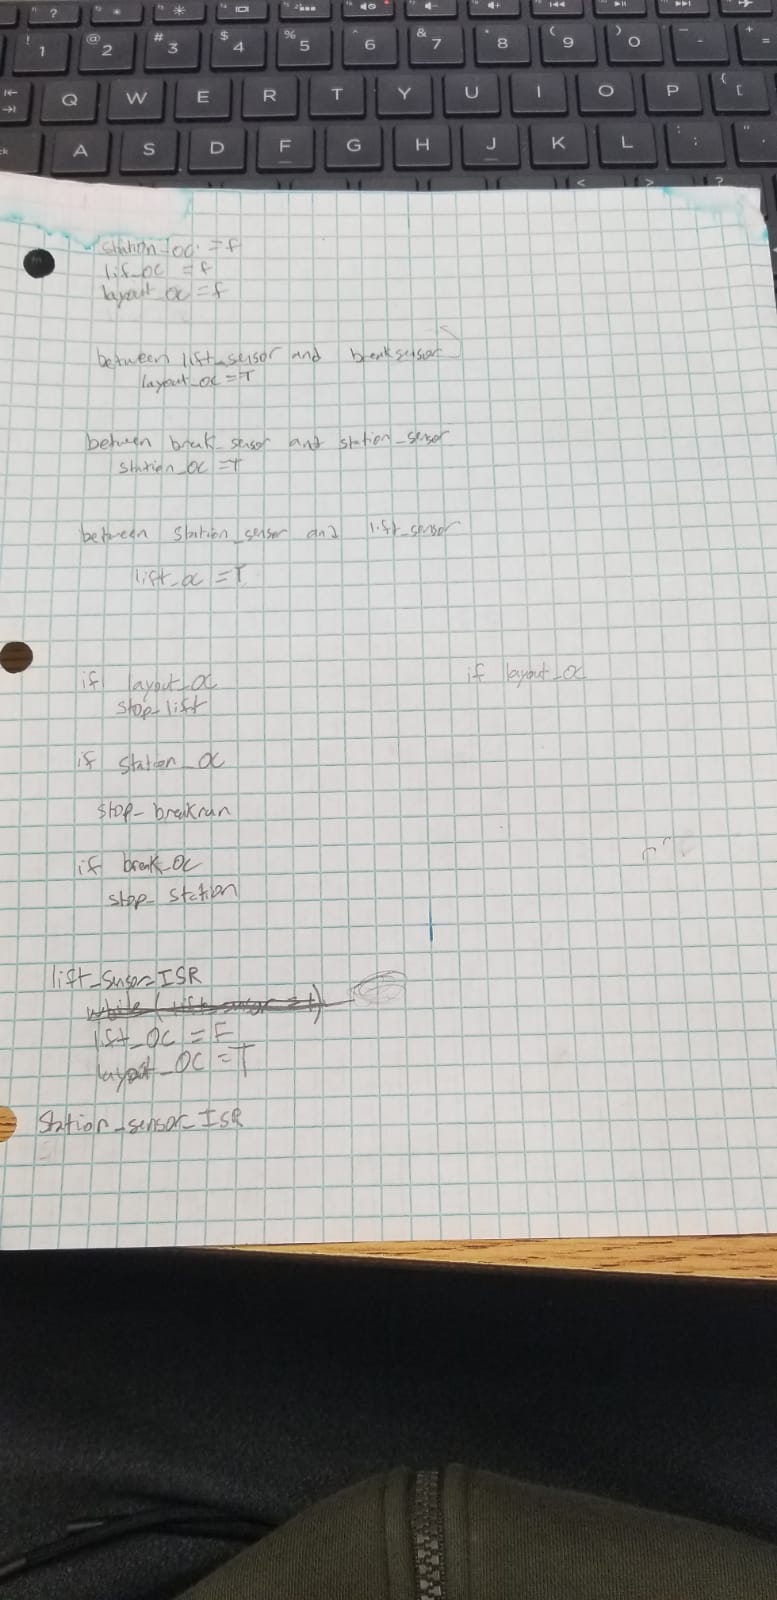 ? * ☀
! 1 @ 2 # 3 $ 4 % 5 ^ 6 & 7 * 8 ( 9 ) 0 - + =
Q W E R T Y U I O P { [
A S D F G H J K L : ; "
< > ?
station_oc = f
lif_oc = f
layout_oc = f
between lift_sensor and break sensor
layout_oc = T
between break_sensor and station_sensor
station_oc = T
between station_sensor and lift_sensor
lift_oc = T
if layout_oc
stop lift
if layout_oc
if station_oc
stop_breakrun
if break_oc
stop_station
lift_sensor_ISR
lift_OC = F
layout_OC = T
Station_sensor_ISR